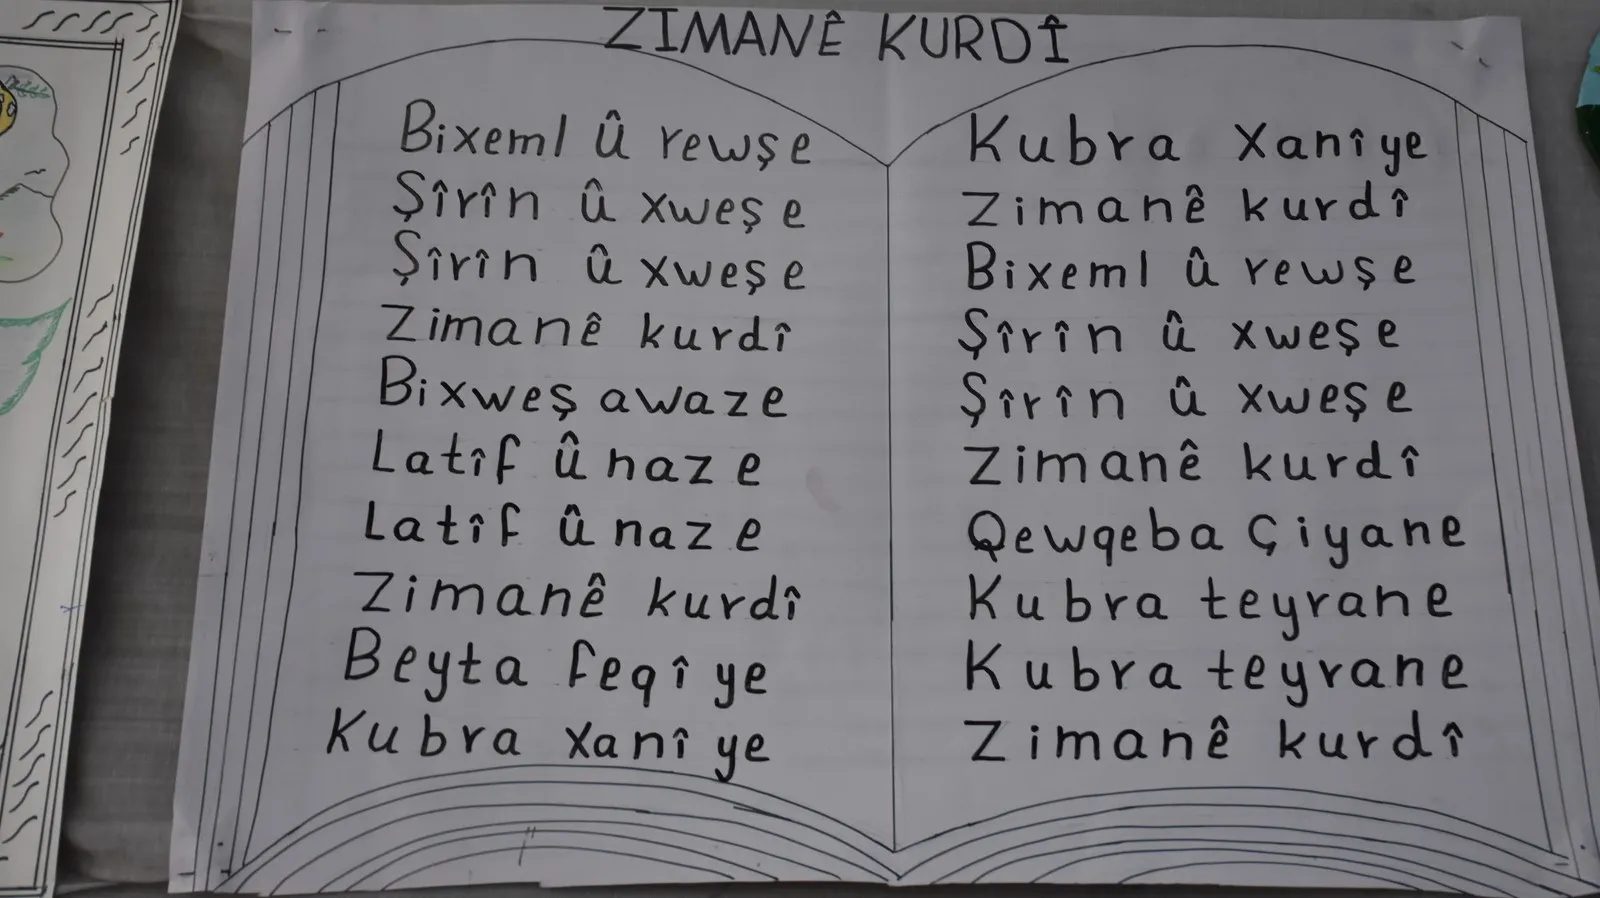 ZIMANÊ KURDÎ
Bixeml û rewşe
Şîrîn û xweşe
Şîrîn û xweşe
Zimanê kurdî
Bixweş awaze
Latîf û naze
Latîf û naze
Zimanê kurdî
Beyta feqî ye
Kubra xanî ye
Kubra Xanîye
Zimanê kurdî
Bixeml û rewşe
Şîrîn û xweşe
Şîrîn û xweşe
Zimanê kurdî
Qewqeba Çiyane
Kubra teyrane
Kubra teyrane
Zimanê kurdî